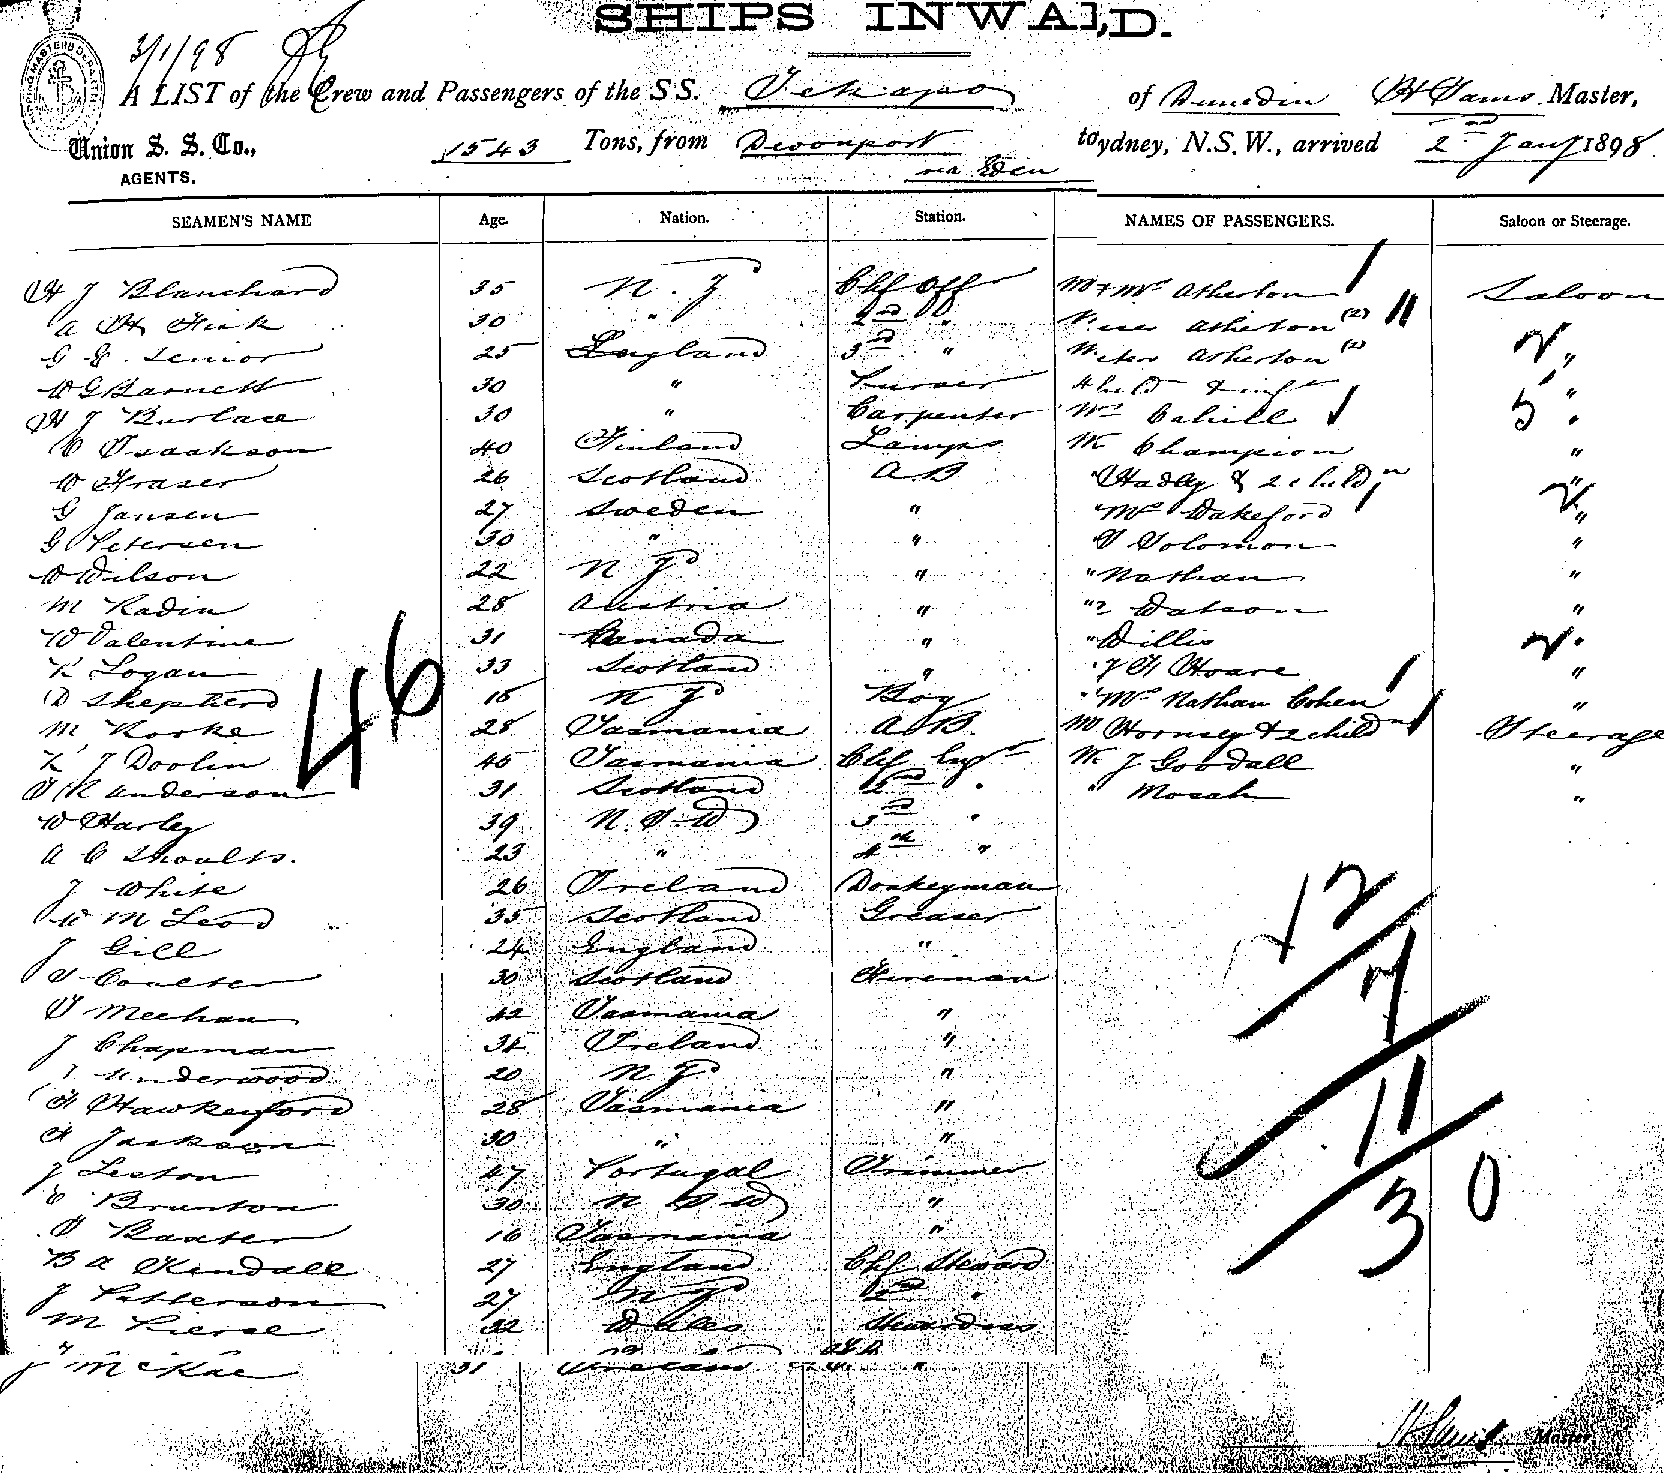 SHIPS INWARD.
3/1/98
A LIST of the Crew and Passengers of the S.S. Tekapo of Dunedin Master,
Union S. S. Co., 1543 Tons, from Devonport to Sydney, N.S.W., arrived 2nd Jany 1898
AGENTS. via Eden
SEAMEN'S NAME Age. Nation. Station. NAMES OF PASSENGERS. Saloon or Steerage.
H J Blanchard 35 N. Z Chf Off Mr & Mrs Atherton Saloon
A H Fink 30 " 2nd Off Atherton (2)
G E Senior 25 England 3rd " Atherton (2) "
W G Barnett 30 " Purser "
H J Burlace 30 " Carpenter Mrs Cahill "
C Isaakson 40 Finland Lamps Mr Champion "
W Fraser 26 Scotland A B " Hadley & 2 childn "
G Jansen 27 Sweden " " Mrs Wakeford "
G Petersen 30 " " " Solomon "
W Wilson 22 N Z " " Nathan "
M Radin 28 Austria " " Watson "
W Valentine 31 Canada " " Willis "
R Logan 33 Scotland " " J H Hoare "
D Shepherd 16 N Z Boy " Mrs Nathan Cohen "
M Rorke 28 Tasmania A.B. Mrs Hornsey & 2 childn Steerage
46
R J Doolin 45 Tasmania Chf Engr Mr J Goodall "
J R Anderson 31 Scotland 2nd " " Mosah "
W Harley 39 N. S. W 3rd "
A C Shoults. 23 " 4th "
J White 26 Ireland Donkeyman
W McLeod 35 Scotland Greaser
J Gill 24 England "
J Coulter 30 Scotland Fireman
T Meehan 42 Tasmania "
J Chapman 34 Ireland "
J Underwood 20 N Z "
H Hawkesford 28 Tasmania "
H Jackson 30 " "
J Leston 47 Portugal Trimmer
C Brunton 30 N S W "
T Baxter 16 Tasmania "
B A Kendall 27 England Chf Steward
J Patterson 27 N Z 2nd "
M Pierce 32 Wales Stewardess
J McRae 31 Ireland "
12
7
11
30
Master